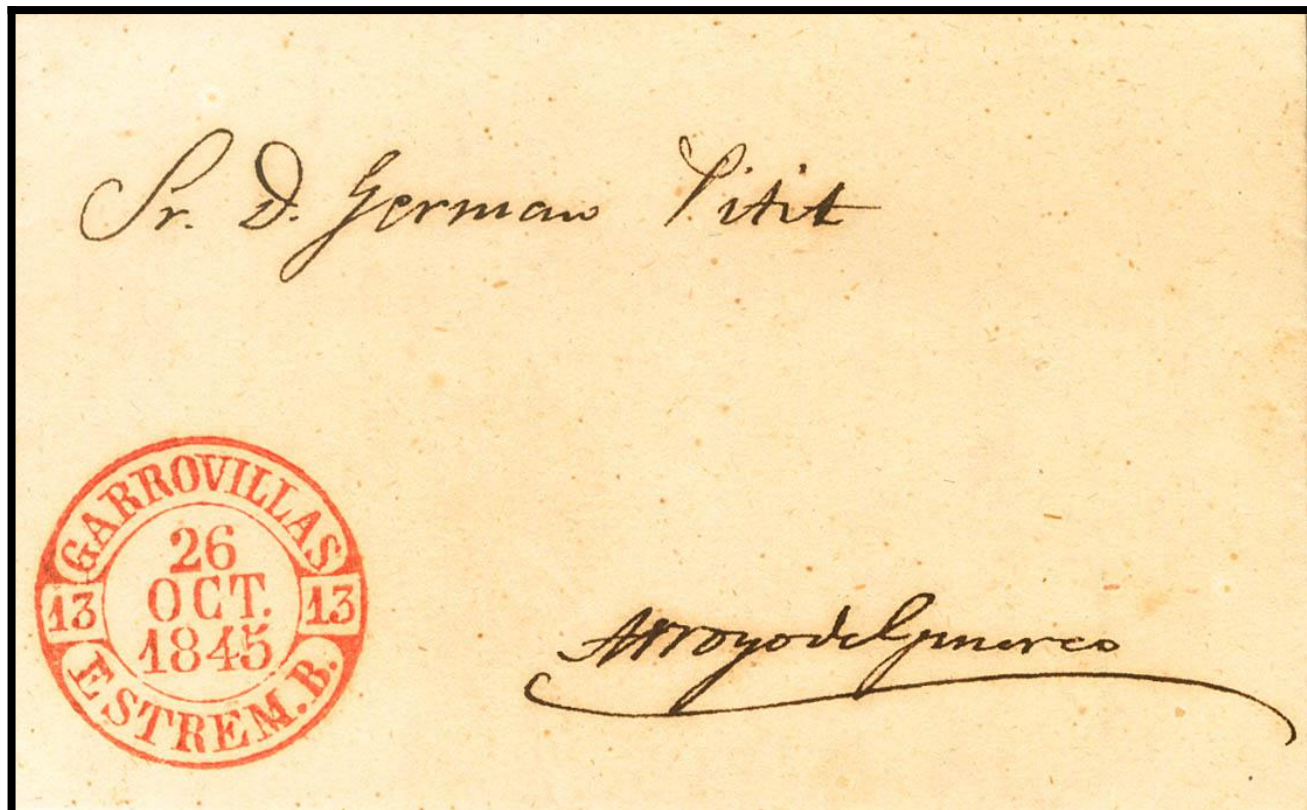 Sr. D. German Titit
GARROVILLAS
13 26 13
OCT.
1845
ESTREM. B.
Arroyo del Puerco